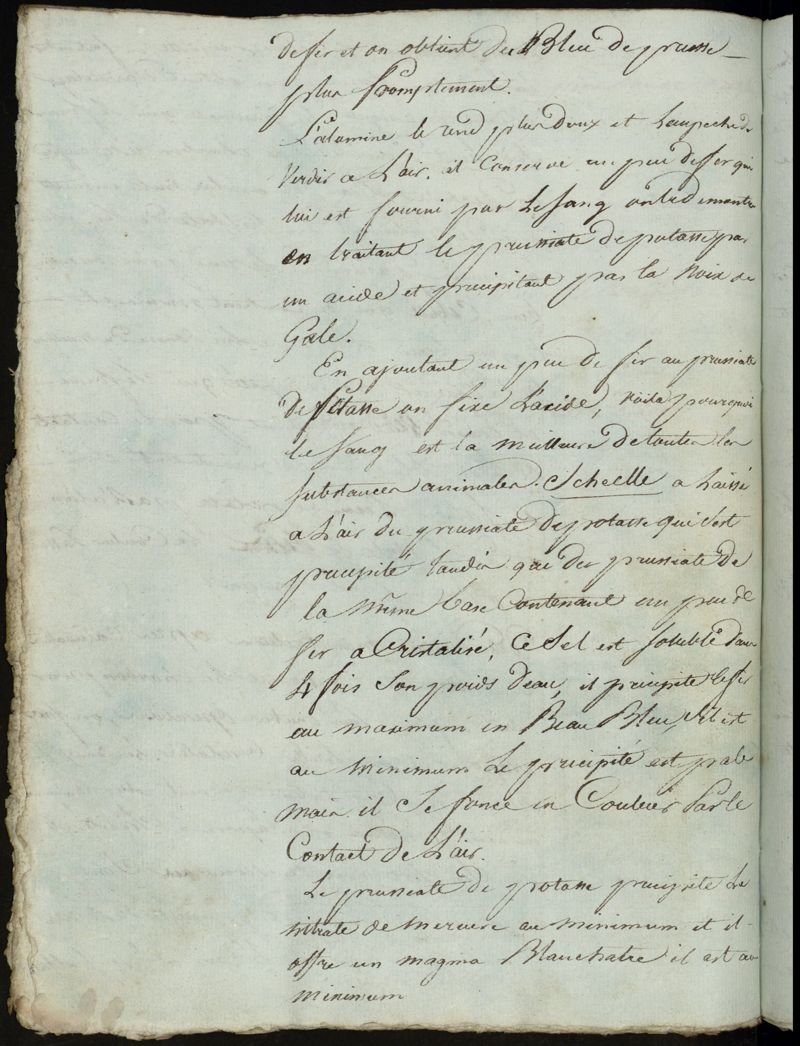 de fer et on obtient du Bleu de prusse
plus promptement.
L'alumine le rend plus doux et L'empeche de
Verdir a L'air. il Conserve un peu de fer qui
lui est fourni par Le Sang on le demontre
en traitant le prussiate de potasse par
un acide et precipitant par la Noix de
Gale.
En ajoutant un peu de fer au prussiate
de Potasse on fixe L'acide, voila pourquoi
le Sang est la meilleure de toutes les
substances animales. Scheelle a Laissé
a L'air du prussiate de potasse qui s'est
precipité tandis que du prussiate de
la même base Contenant un peu de
fer a Cristalisé, Ce Sel est soluble dans
4 fois Son poids d'eau, il precipite le fer
au maximum en Beau Bleu, s'il est
au Minimum Le precipite est
il Se fonce en Couleur Par le
Contact de L'air.
Le prussiate de potasse precipite Le
nitrate de mercure au minimum et il
offre un magma Blanchatre il est au
minimum